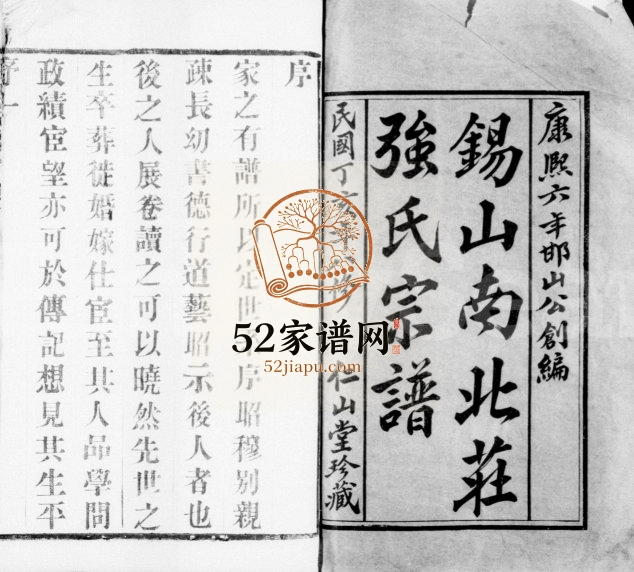 康熙六年邯山公創編
錫山南北莊
強氏宗譜
民國丁亥年 修 仁山堂珍藏
序
家之有譜所以定世 序昭穆別親
疎長幼書德行道藝昭示後人者也
後之人展卷讀之可以曉然先世之
生卒葬徙婚嫁仕宦至其人品學問
政績宦望亦可於傳記想見其生平
序 一
52家谱网
52jiapu.com